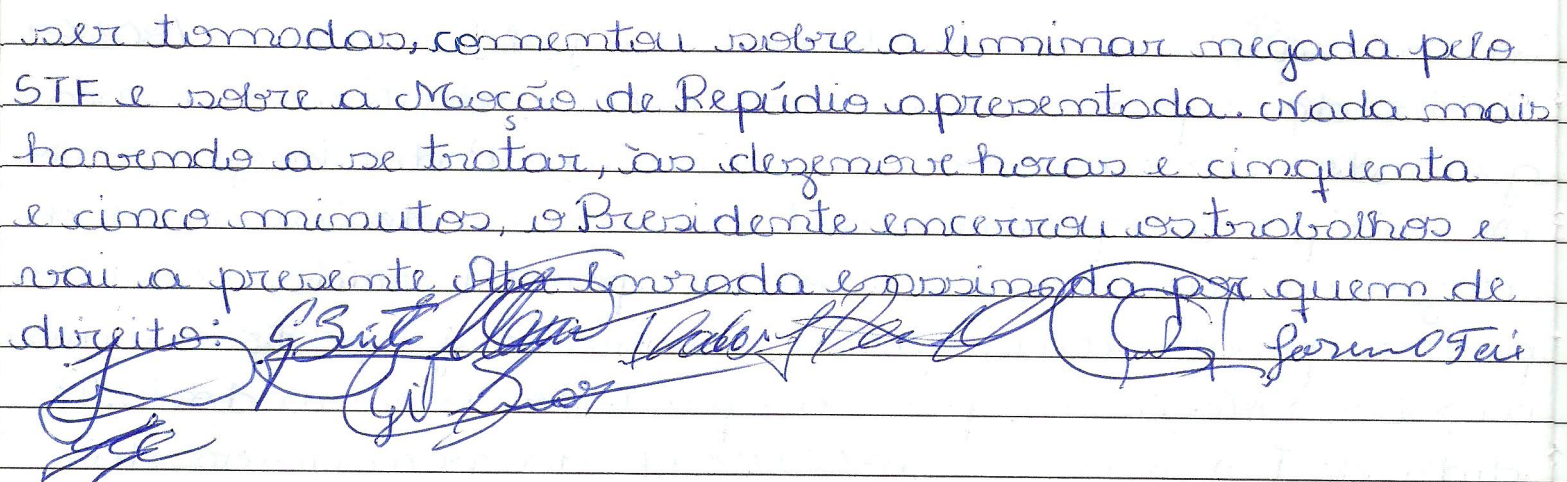 ser tomadas, comentou sobre a liminar negada pelo
STF e sobre a Moção de Repúdio apresentada. Nada mais
havendo a se tratar, às dezenove horas e cinquenta
e cinco minutos, o Presidente encerrou os trabalhos e
vai a presente Ata lavrada e assinada por quem de
direito: